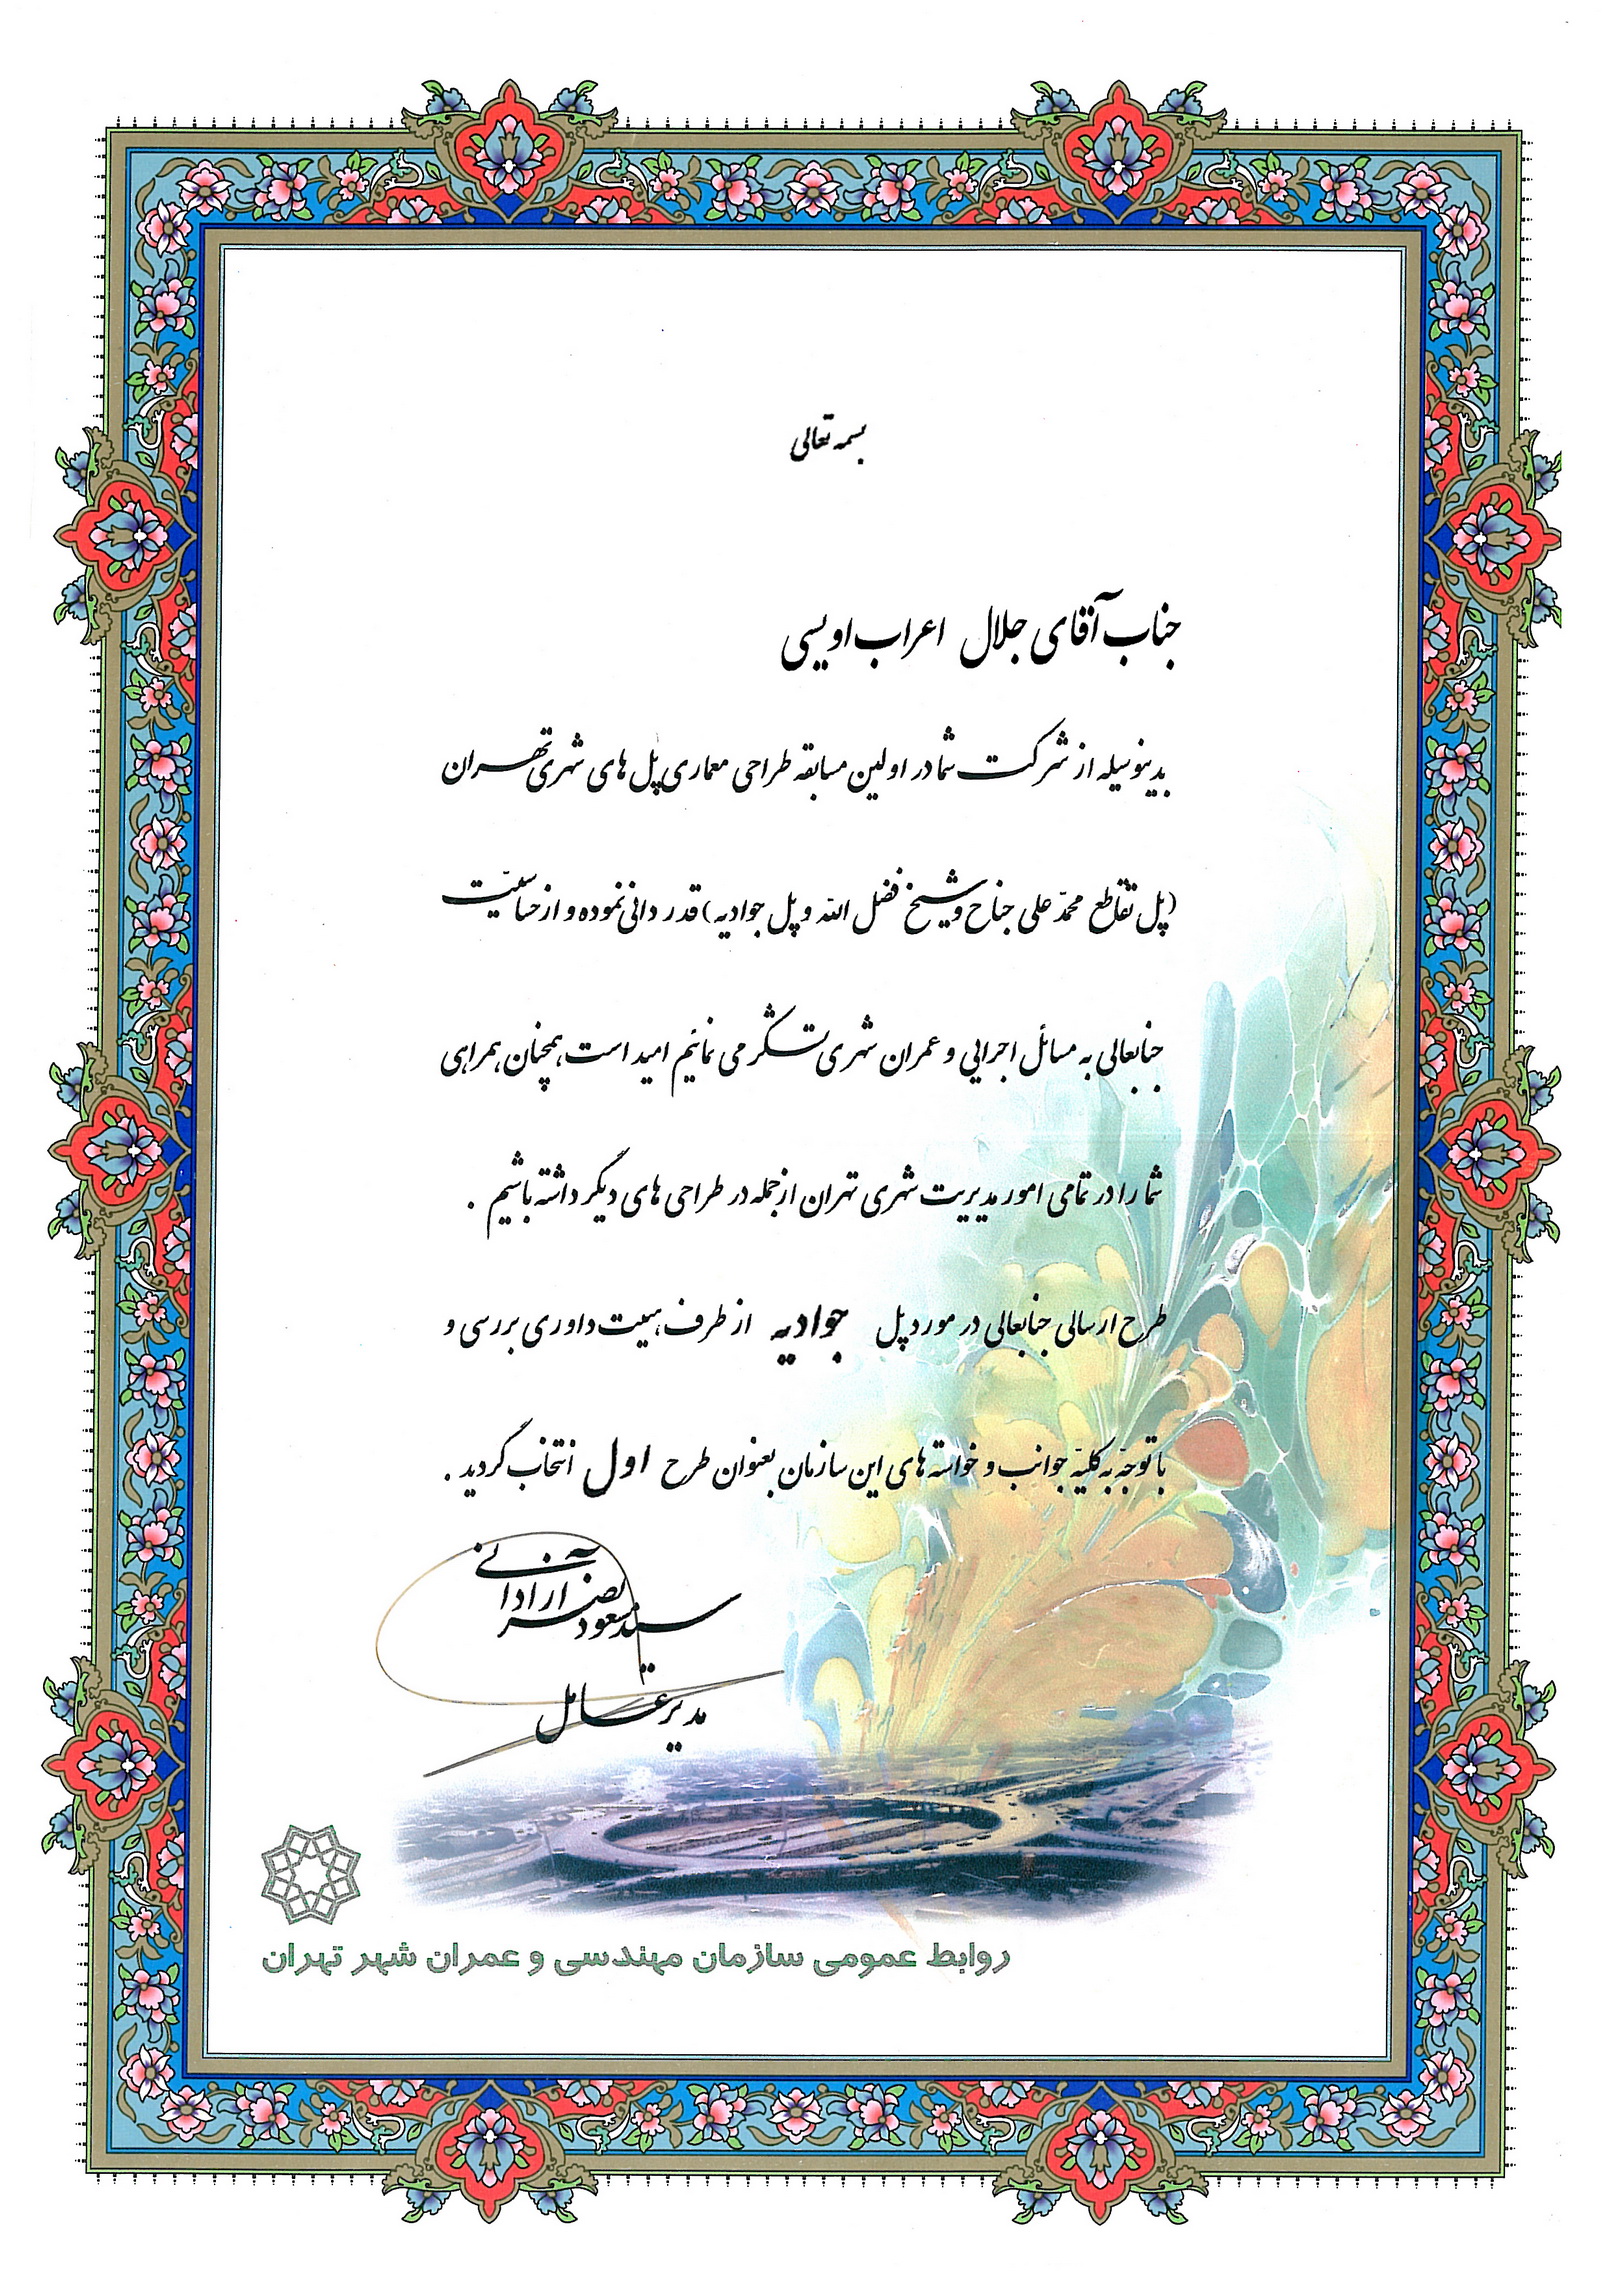 بسمه تعالی
جناب آقای جلال اعراب اویسی
بدینوسیله از شرکت شما در اولین مسابقه طراحی معماری پل های شهری تهران
(پل تقاطع محمّد علی جناح و شیخ فضل الله و پل جوادیه) قدردانی نموده و از حساسیّت
جنابعالی به مسائل اجرایی و عمران شهری تشکر می نمائیم امید است همچنان همراهی
شما را در تمامی امور مدیریت شهری تهران ازجمله در طراحی های دیگر داشته باشیم .
طرح ارسالی جنابعالی در مورد پل جوادیه از طرف هییت داوری بررسی و
با توجّه به کلیّه جوانب و خواسته های این سازمان بعنوان طرح اول انتخاب گردید .
سید مسعود نصر آزادانی
مدیر عامل
روابط عمومی سازمان مهندسی و عمران شهر تهران